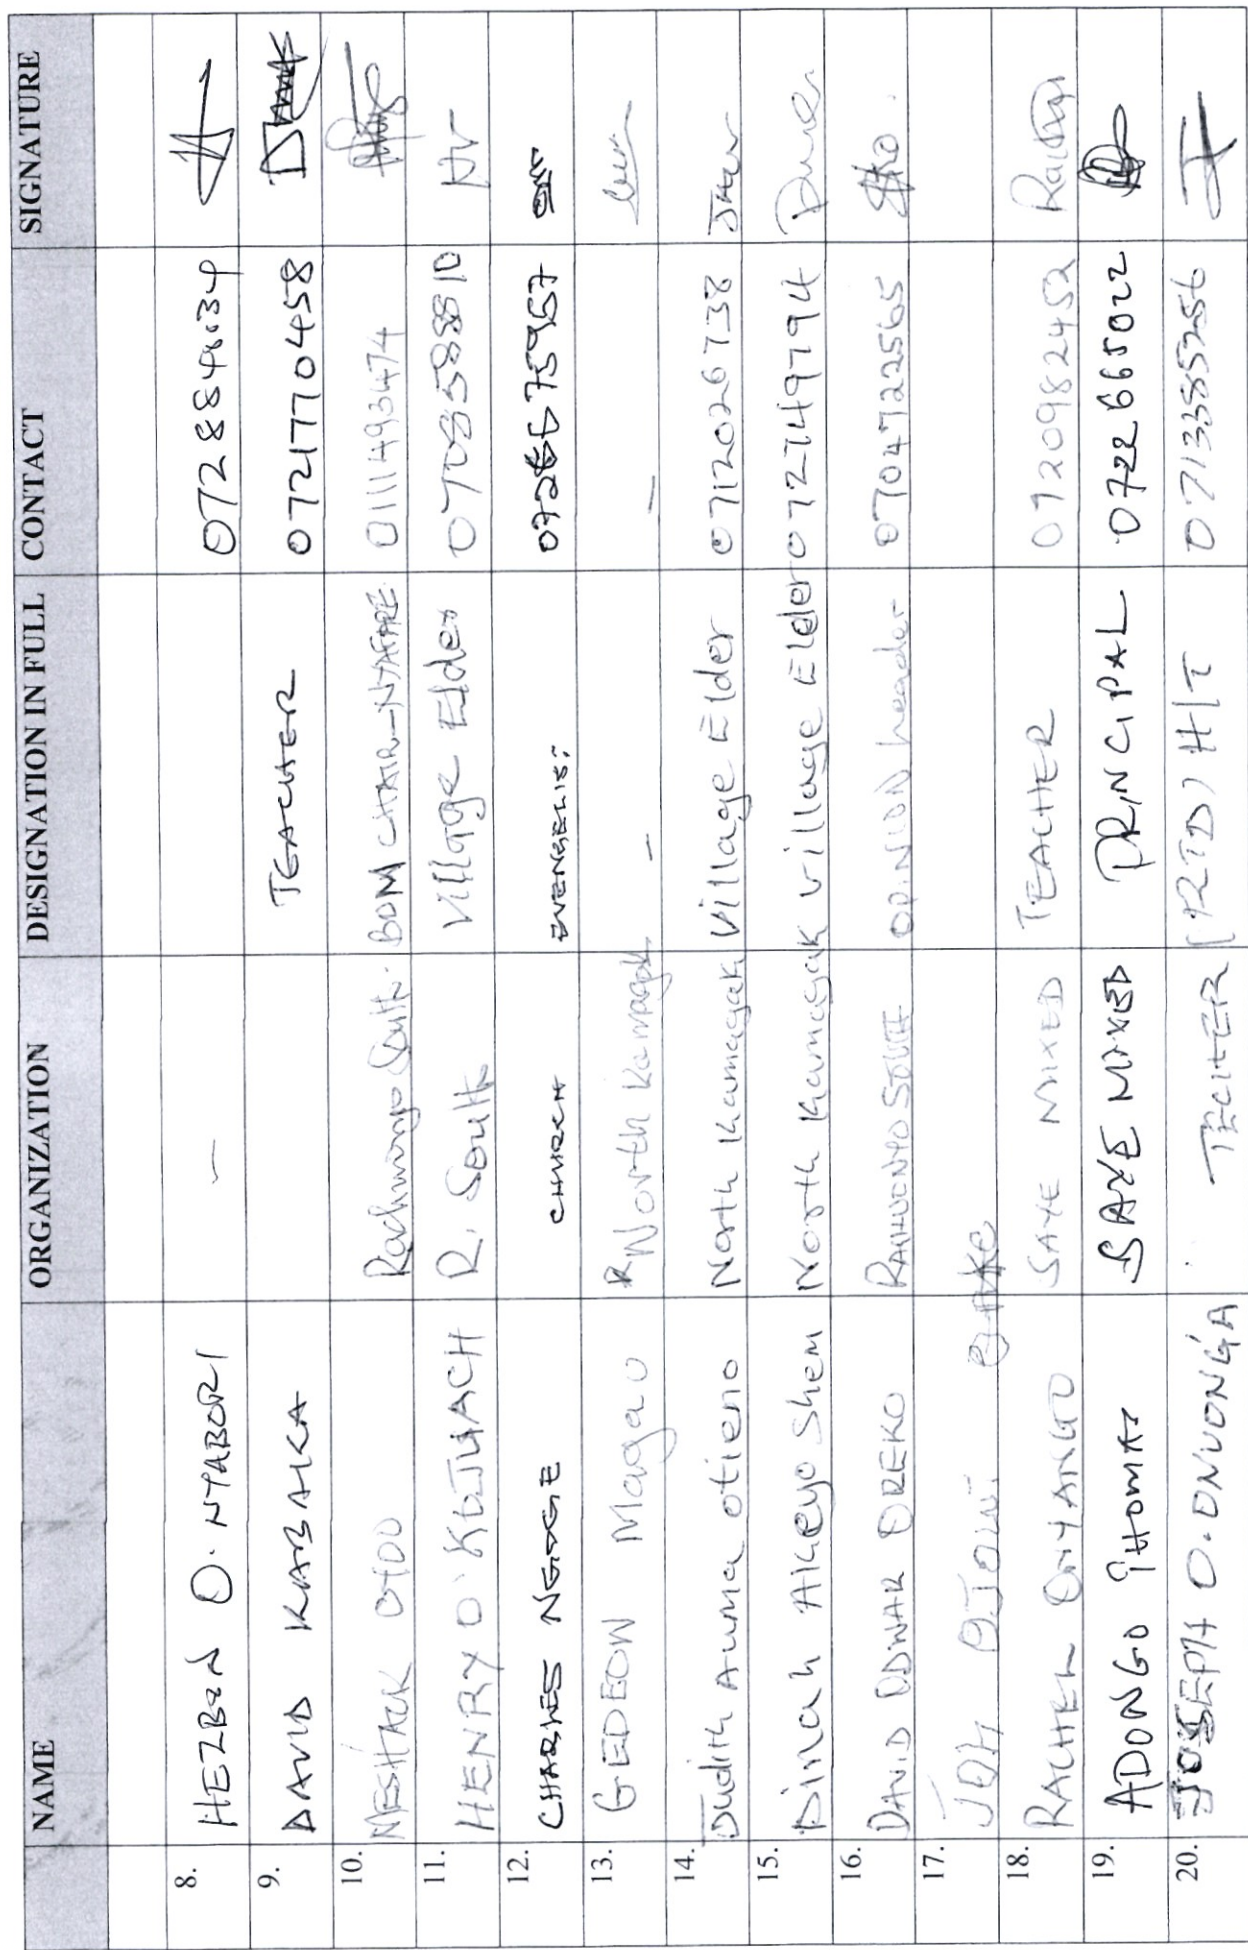 NAME ORGANIZATION DESIGNATION IN FULL CONTACT SIGNATURE
8. HEZBON O. NYABORI –
9. DAVID KABAKA TEACHER 0721770458
10. MESHACK OYOO Rachuonyo South. BOM CHAIR-NYAFARE 0111493474
11. HENRY O' KOJUACH R. South Village Elder 0708585810
12. CHARLES NGOGE CHURCH
13. GEDEON Magau North Kamagak – –
14. Judith Auma Otieno North Kamagak Village Elder 0712026738
15. Dinah Akeyo Shem North Kamagak Village Elder 0727149794
16. DAVID ODWAR OREKO RAHUONYO SOUTH OPINION leader 0704722565
17.
18. RACHEL ONYANGO SAYE MIXED TEACHER 0720982452
19. ADONGO THOMAS SAYE MIXED PRINCIPAL 0722665022
20. JOSEPH O. ONUONG'A TECHER (RTD) H/T 0713385256